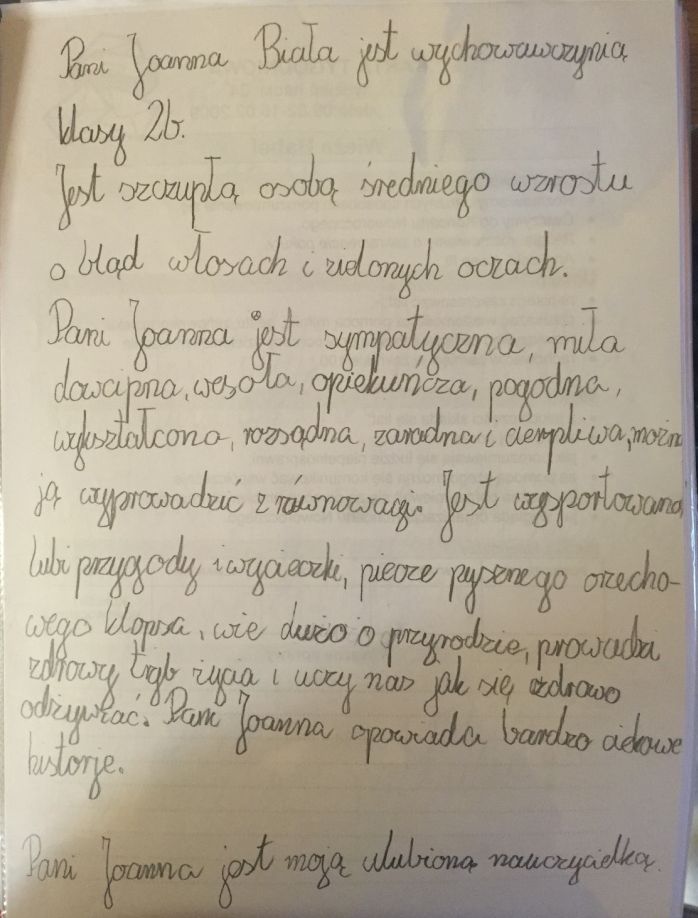 Pani Joanna Biała jest wychowawczynią
klasy 2b.
Jest szczupłą osobą średniego wzrostu
o bląd włosach i zielonych oczach.
Pani Joanna jest sympatyczna, miła
dowcipna, wesoła, opiekuńcza, pogodna,
wykształcona, rozsądna, zaradna i cierpliwa, możn
ją wyprowadzić z równowagi. Jest wysportowana
lubi przygody i wycieczki, piecze pysznego orzecho-
wego klopsa, wie dużo o przyrodzie, prowadzi
zdrowy tryb życia i uczy nas jak się zdrowo
odżywiać. Pani Joanna opowiada bardzo ciekawe
historje.
Pani Joanna jest moją ulubioną nauczycielką.